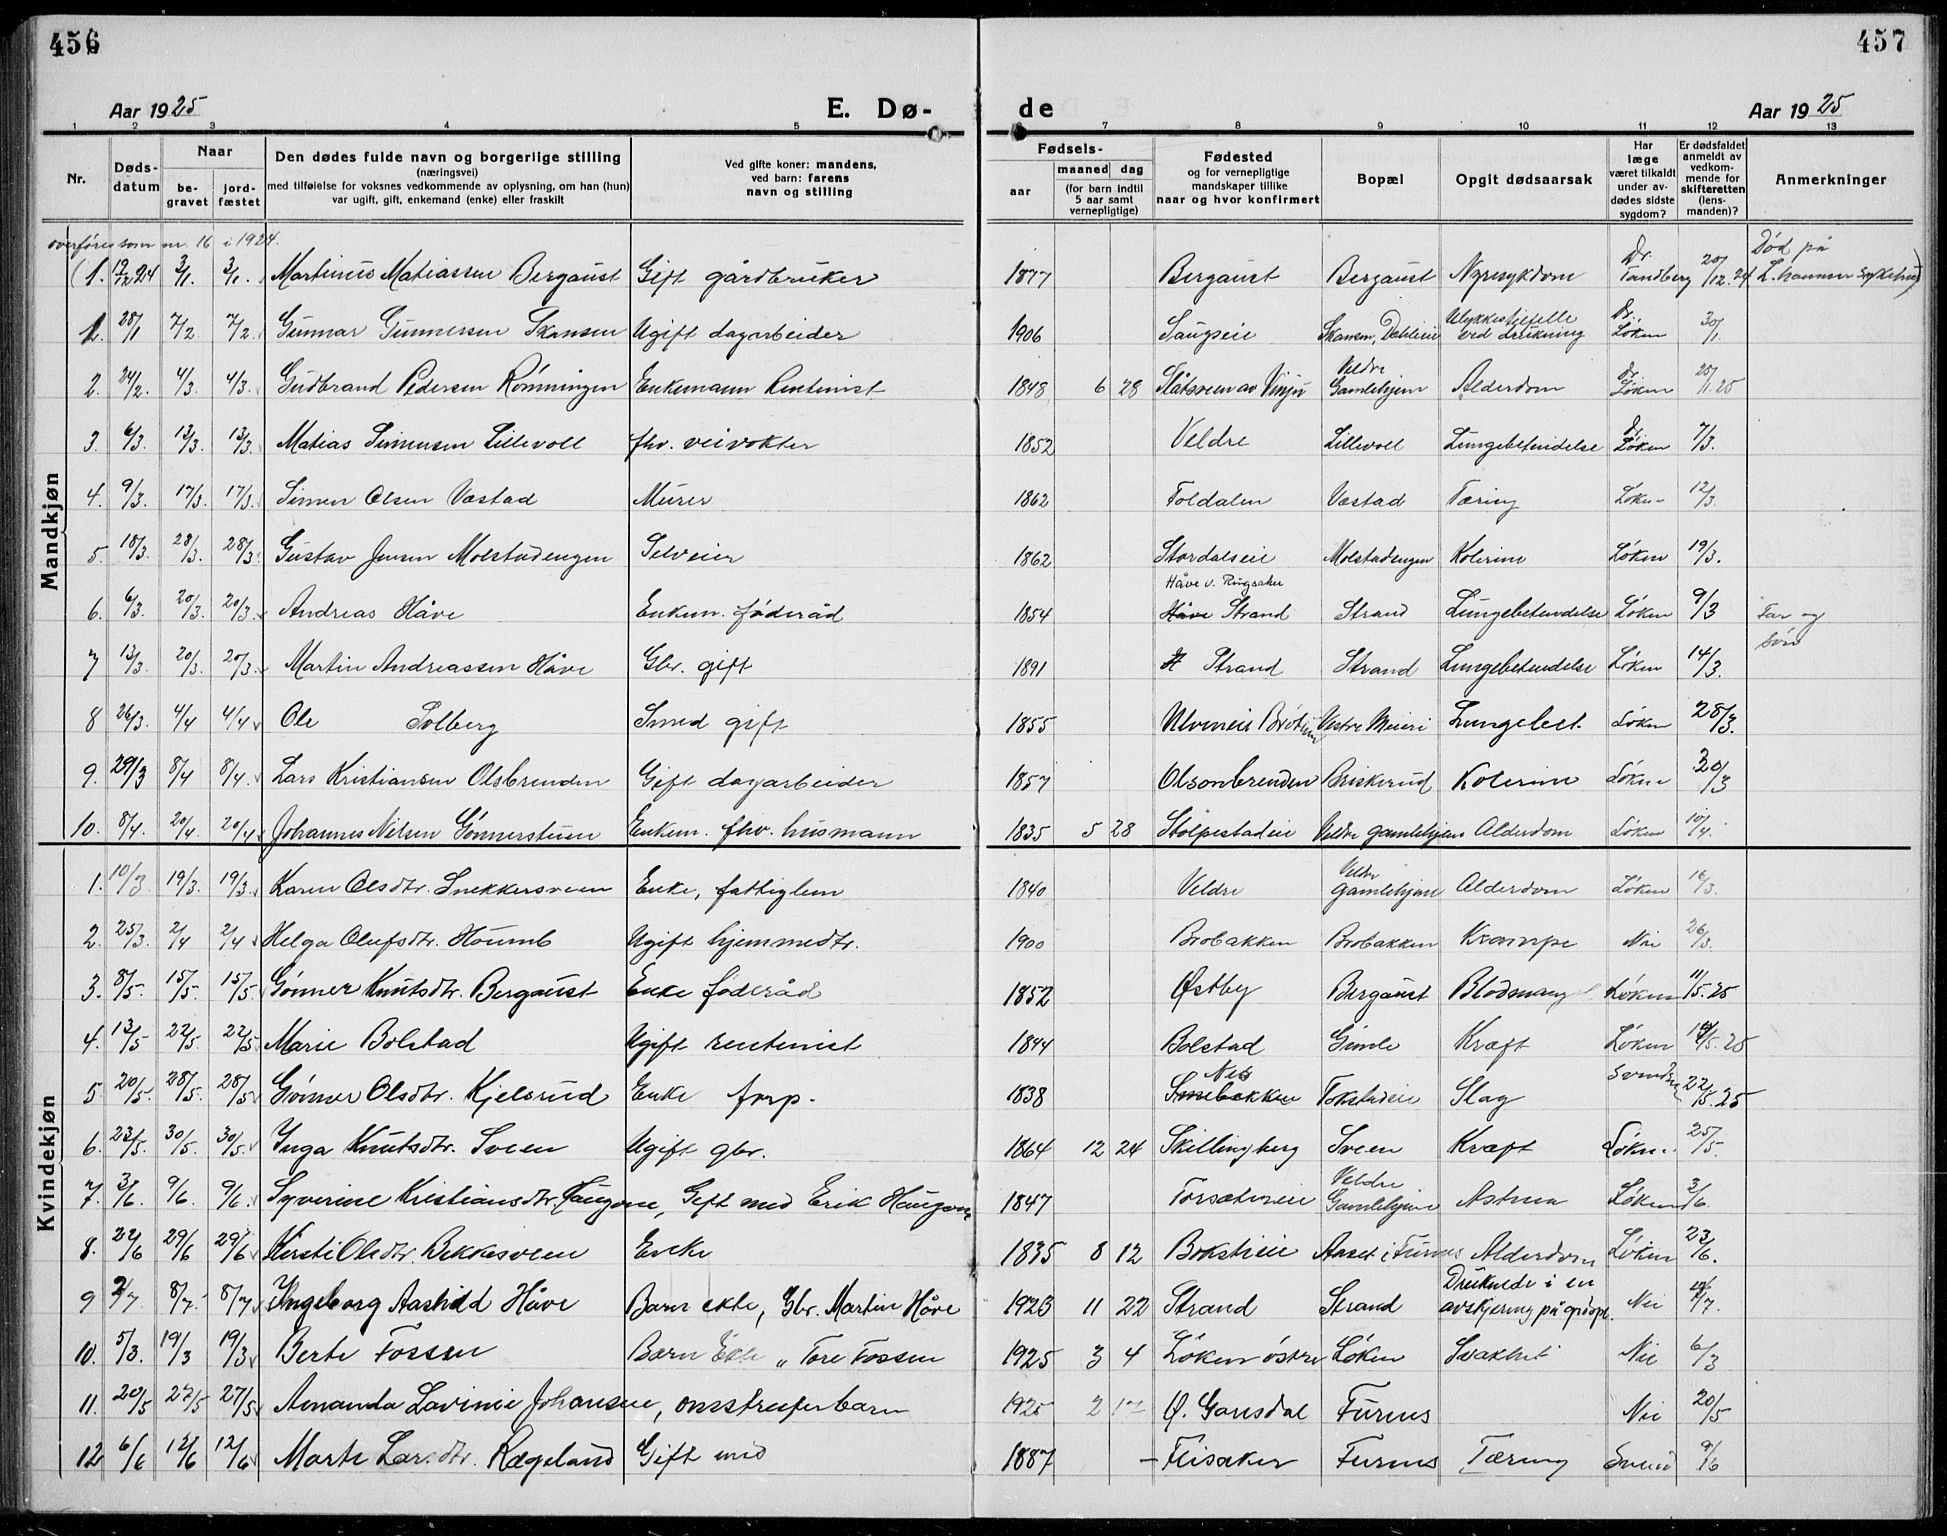 456
457
Aar 1925
E. Dø-
de
Aar 1925
1 2 3 4 5 6 7 8 9 10 11 12 13
Nr.
Døds-
datum
Naar
be-
gravet
jord-
fæstet
Den dødes fulde navn og borgerlige stilling
(næringsvei)
med tilføielse for voksnes vedkommende av oplysning, om han (hun)
var ugift, gift, enkemand (enke) eller fraskilt
Ved gifte koner: mandens,
ved barn: farens
navn og stilling
Fødsels-
aar
maaned
dag
(for barn indtil
5 aar samt
vernepligtige)
Fødested
og for vernepligtige
mandskaper tillike
naar og hvor konfirmert
Bopæl
Opgit dødsaarsak
Har
læge
været tilkaldt
under av-
dødes sidste
sygdom?
Er dødsfaldet
anmeldt av
vedkom-
mende for
skifteretten
(lens-
manden)?
Anmerkninger
Mandkjøn
overføres som nr. 16 i 1924.
(1. 12/12 24 3/1. 3/1. Martinus Matiassen Bergaust Gift gårdbruker 1877 Bergaust Bergaust Nyresykdom Dr. Tandberg 20/12.24 Død på L.hammer sykehus)
1. 28/1 7/2. 7/2. Gunnar Gunnersen Skansen Ugift dagarbeider 1906 Saugseie Skansen, Dehlieie Ulykkestilfelle ved drukning Dr. Løken 30/1.
2. 24/2. 4/3. 4/3. Gudbrand Pedersen Rønningen Enkemann Rentenist 1848 6 28 Slåtsveen av Vinju Veldre Gamlehjem Alderdom Dr. Løken 25
3. 6/3. 13/3. 13/3. Matias Simensen Lillevoll fhv. veivokter 1852 Veldre Lillevoll Lungebetendelse Dr. Løken 7/3.
4. 9/3. 17/3. 17/3. Simen Olsen Vastad Murer 1862 Foldalen Vastad Tæring Løken 12/3.
5. 18/3. 28/3. 28/3. Gustav Jensen Molstadengen Selveier 1862 Stordalseie Molstadengen Kolerine Løken 19/3.
6. 6/3. 20/3. 20/3. Andreas Håve Enkem. føderåd 1854 Håve v. Ringsaker Håve Strand Strand Lungebetendelse Løken 9/3 Far og
7 13/3. 20/3. 20/3. Martin Andreassen Håve Gbr. gift 1891 H Strand Strand Lungebetendelse Løken 14/3. søn
8 26/3. 4/4 4/4 Ole Solberg Smed gift 1855 Ulvineie Brøtum Vestre Meieri Lungebet. Løken 28/3.
9. 29/3 8/4 8/4. Lars Kristiansen Olsbrenden Gift dagarbeider 1857 Olsonbrenden Briskerud Kolerine Løken 30/3
10. 8/4. 20/4. 20/4 Johannes Nilsen Gønnerstuen Enkem. fhv. husmann 1835 5 28 Stolpestadeie Veldre gamlehjem Alderdom Løken 10/4.
Kvindekjøn
1. 10/3 19/3. 19/3. Karen Olsdtr. Snekkersveen Enke, fattiglem 1840 Veldre Veldre gamlehjem Alderdom Løken 16/3.
2. 25/3. 2/4 2/4 Helga Olufsdtr. Houmb Ugift hjemmedtr. 1900 Brobakken Brobakken Krampe Nei 26/3.
3. 8/5. 15/5. 15/5 Gønner Knutsdtr. Bergaust Enke føderåd 1852 Østby Bergaust Blodmangel Løken 11/5.25
4. 13/5 22/5. 22/5 Marie Bolstad Ugift rentenist 1844 Bolstad Gimle Kræft Løken 14/5.25
5. 20/5. 28/5. 28/5 Gønner Olsdtr. Kjelsrud Enke forp. 1838 Tokstadeie Slag Svendsen 22/5.25
6. 23/5. 30/5. 30/5. Inga Knutsdtr. Sveen Ugift gbr. 1864 12 24 Skillingberg Sveen Kræft Løken 25/5.
7. 3/6. 9/6. 9/6. Syverine Kristiansdtr. Haugene, Gift med Erik Haugene 1847 Torsæthreie Veldre Gamlehjem Astma Løken 3/6.
8. 22/6 29/6 29/6 Kirsti Olsdtr. Bekkesveen Enke 1835 8 12 Bokstieie Aaset i Furnes Alderdom Løken 23/6.
9 2/7 8/7. 8/7 Ingeborg Aasthild Håve Barn ekte, Gbr. Martin Håve 1923 11 22 Strand Strand Druknede i en avskjering på grøopl. Nei /7.
10. 5/3. 19/3 19/3 Berte Fossen Barn Ekte „ Tore Fossen 1925 3 4 Løken østre Løken Svakhet Nei 6/3
11. 20/5 27/5 27/5 Amanda Lavinie Johansen, omstreiferbarn 1925 2 17 Ø. Gaustdal Furnes Nei 20/5
12 6/6 12/6 12/6 Marte Larsdtr. Rægeland Gift med 1887 – Flisaker Furnes Tæring Svend 9/6